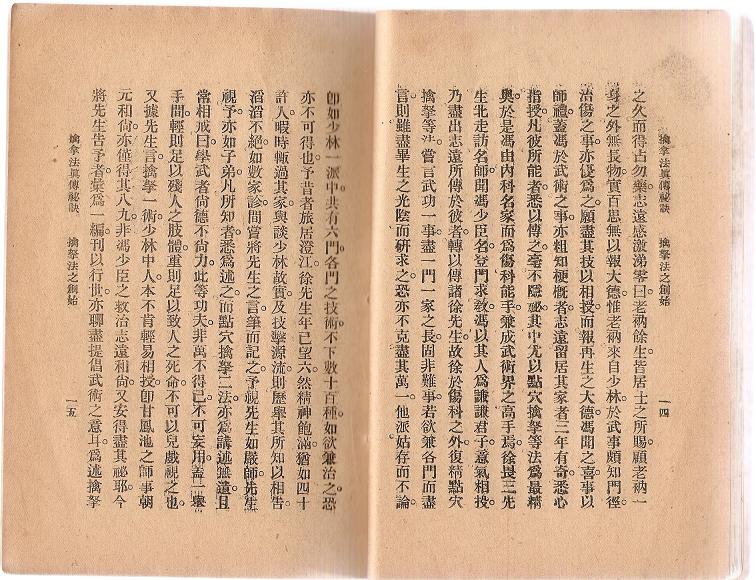 擒拿法眞傳祕訣　擒拏法之創始　一四
之久而得占勿藥志遠感激涕零曰老衲餘生皆居士之所賜顧老衲一
身之外無長物實百思無以報大德惟老衲來自少林於武事頗知門徑
治傷之事亦優爲之願盡其技以相授而報再生之大德馮聞之喜事以
師禮蓋馮於武術之事亦粗知梗慨者志遠留居其家者三年有奇悉心
指授凡彼所能者悉以傳之毫不隱祕其中尤以點穴擒拏等法爲最精
奧於是馮由內科名家而爲傷科能手兼成武術界之高手焉徐畏三先
生北走訪名師聞馮少臣名登門求敎馮以其人爲謙謙君子意氣相投
乃盡出志遠所傳於彼者轉以傳諸徐先生故徐於傷科之外復精點穴
擒拏等法嘗言武功一事盡一門一家之長固非難事若欲兼各門而盡
言則雖盡畢生之光陰而研求之恐亦不克盡其萬一他派姑存而不論
卽如少林一派中共有六門各門之技術不下數十百種如欲兼治之恐
亦不可得也予昔者旅居澄江徐先生年已望六然精神飽滿猶如四十
許人暇時輒過其家與談少林故實及技擊源流則歷舉其所知以相告
滔滔不絕如數家診間嘗將先生之言筆而記之予視先生如嚴師先生
視予亦如子弟凡所知者悉爲述之而點穴擒拏二法亦爲講述無遺且
常相戒曰學武者尙德不尙力此等功夫非萬不得已不可妄用蓋一舉
手間輕則足以殘人之肢體重則足以致人之死命不可以兒戲視之也
又據先生言擒拏一術少林中人本不肯輕易相授卽甘鳳池之師事朝
元和尙亦僅得其八九非馮少臣之救治志遠和尙又安得盡其祕耶今
將先生告予者彙爲一編刊以行世亦聊盡提倡武術之意耳爲述擒拏
擒拿法眞傳祕訣　擒拏法之創始　一五